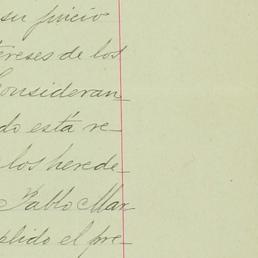 su juicio
tereses de los
Consideran-
do está re-
los herede-
Pablo Mar
plido el pre-